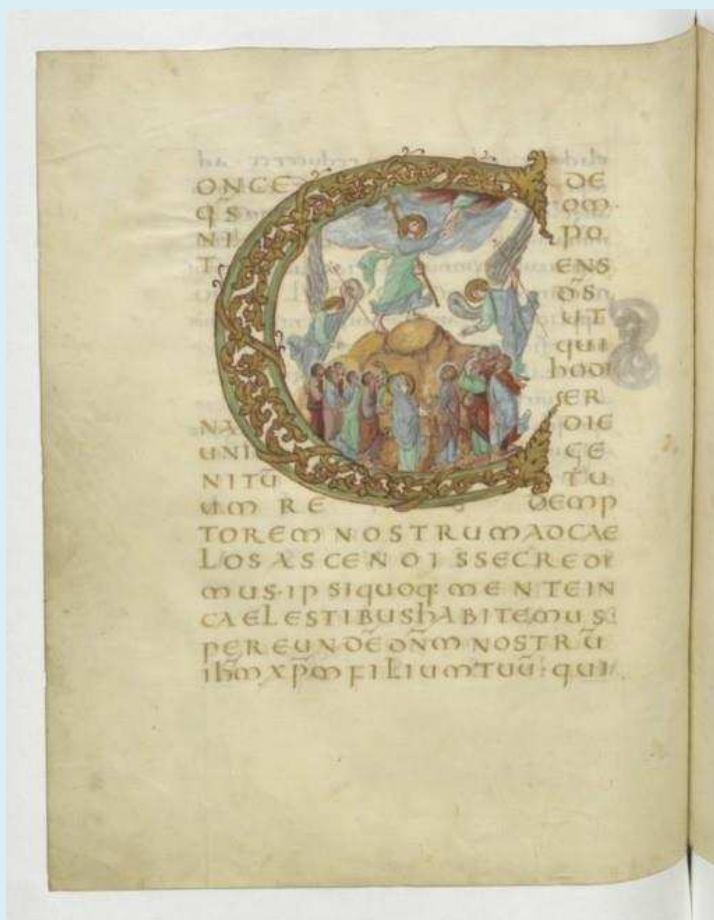 CONCE DE
q̄S OM
NI PO
T ENS
D̄S
UT
qUI
hODI
ER
NA DIE
UNI GE
NITŪ TU
UM RE DEMP
TOREM NOSTRUM AD CAE
LOS ASCENDISSE CREDI
MUS· IPSI qUOq; MENTE IN
CAELESTIBUS hABITEMUS
PER EUNDĒ DN̄M NOSTRŪ
ih̄m XP̄M FILIUM TUŪ· qUI